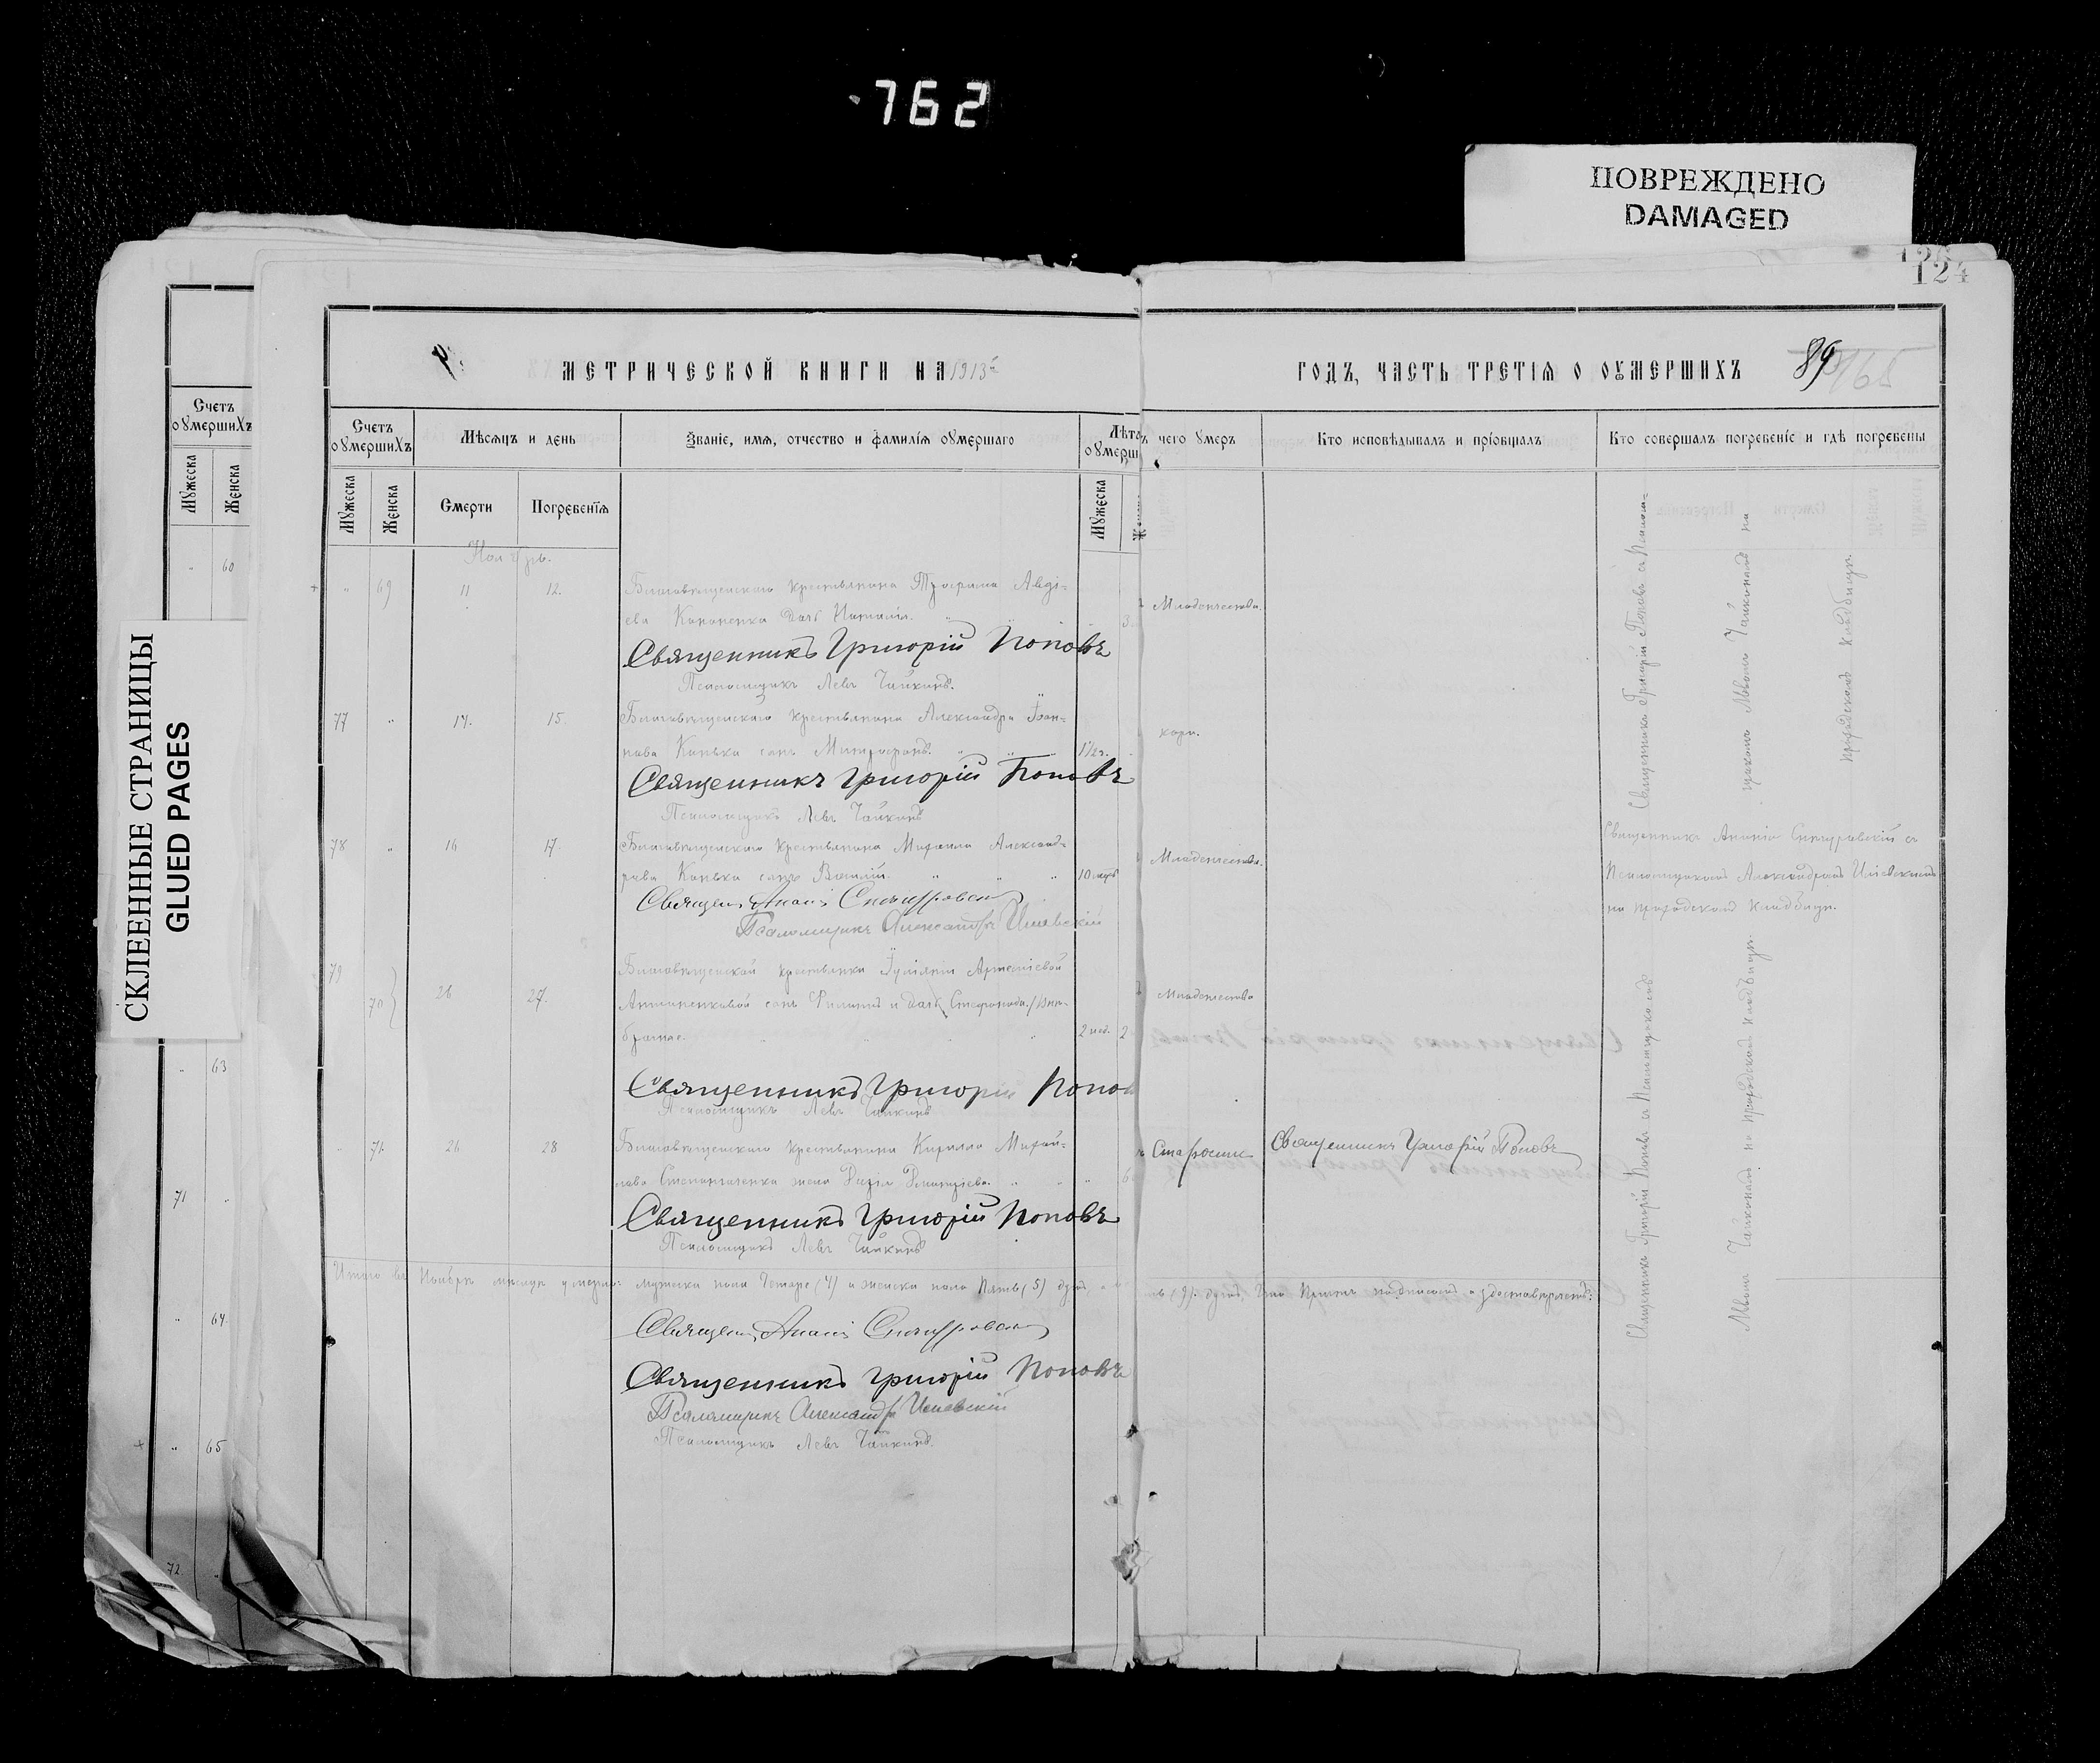 762
ПОВРЕЖДЕНО
DAMAGED
124
СКЛЕЕННЫЕ СТРАНИЦЫ
GLUED PAGES
Счетъ
оумершихъ
Мужеска
Женска
60
63
71
64
65
72
МЕТРИЧЕСКОЙ КНИГИ НА 1913
ГОДЪ, ЧАСТЬ ТРЕТІЯ О ОУМЕРШИХЪ
89
165
Счетъ оумершихъ
Мѣсяцъ и день
Званіе, имя, отчество и фамилія оумершаго
Лѣта оумерш
чего умеръ
Кто исповѣдывалъ и пріобщалъ
Кто совершалъ погребеніе и гдѣ погребены
Мужеска
Женска
Смерти
Погребенія
Мужеска
Ноябрь.
69 11 12. Благовѣщенскаго крестьянина Трофима Авді-
ева Кононенка дочь Наталія. 3 Младенчества.
Священникъ Григорій Поповъ
Псаломщикъ Левъ Чайкинъ.
77 14. 15. Благовѣщенскаго крестьянина Александра Іоан-
нова Конька сынъ Митрофанъ. 1 1/2 г. кори.
Священникъ Григорій Поповъ
Псаломщикъ Левъ Чайкинъ
78 16 17. Благовѣщенскаго крестьянина Михаила Александ-
рова Конька сынъ Василій. 10 мцъ Младенчества.
Священ. Ананія Снѣгуровскій
Псаломщикъ Александръ Ильевскій
79 70 26 27. Благовѣщенской крестьянки Іуліаніи Артеміевой
Антоненковой сынъ Филиппъ и дочь Стефанида /внѣ-
брачные. 2 нед. 2 Младенчества
Священникъ Григорій Поповъ
Псаломщикъ Левъ Чайкинъ
71 26 28 Благовѣщенскаго крестьянина Кирилла Михай-
лова жена Димитріева. 6 Старости Священникъ Григорій Поповъ
Священникъ Григорій Поповъ
Псаломщикъ Левъ Чайкинъ
Итого въ Ноябрѣ мѣсяцѣ умерло: мужеска пола Четыре (4) и женска пола Пять (5) душъ, (9) душъ, Что Причтъ подписомъ удостовѣряетъ:
Священ. Ананія Снѣгуровскій
Священникъ Григорій Поповъ
Псаломщикъ Александръ Ильевскій
Псаломщикъ Левъ Чайкинъ.
Священникъ Григорій Поповъ съ Псалом-
щикомъ Львомъ Чайкинымъ на
приходскомъ кладбищѣ.
Священникъ Ананія Снѣгуровскій съ
Псаломщикомъ Александромъ Ильевскимъ
на приходскомъ кладбищѣ.
Священникъ Григорій Поповъ съ Псаломщикомъ
Львомъ Чайкинымъ на приходскомъ кладбищѣ.